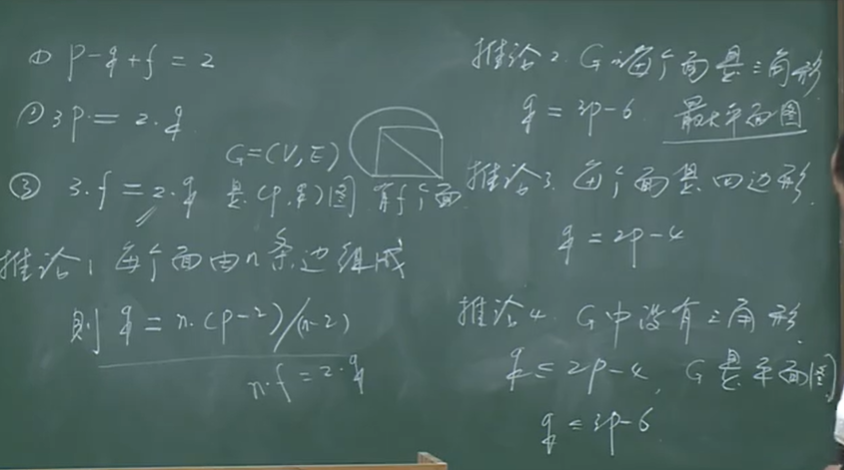 ① p-q+f=2
② 3p=2.q
G=(V,E)
③ 3.f=2.q 是(p,q)图 有f个面
推论1 每个面由n条边组成
则 q=n.(p-2)/(n-2)
n.f=2.q
推论2. G的每个面是三角形
q=3p-6 最大平面图
推论3. 每个面是四边形.
q=2p-4
推论4. G中没有三角形.
q≤2p-4, G是平面图
q≤3p-6